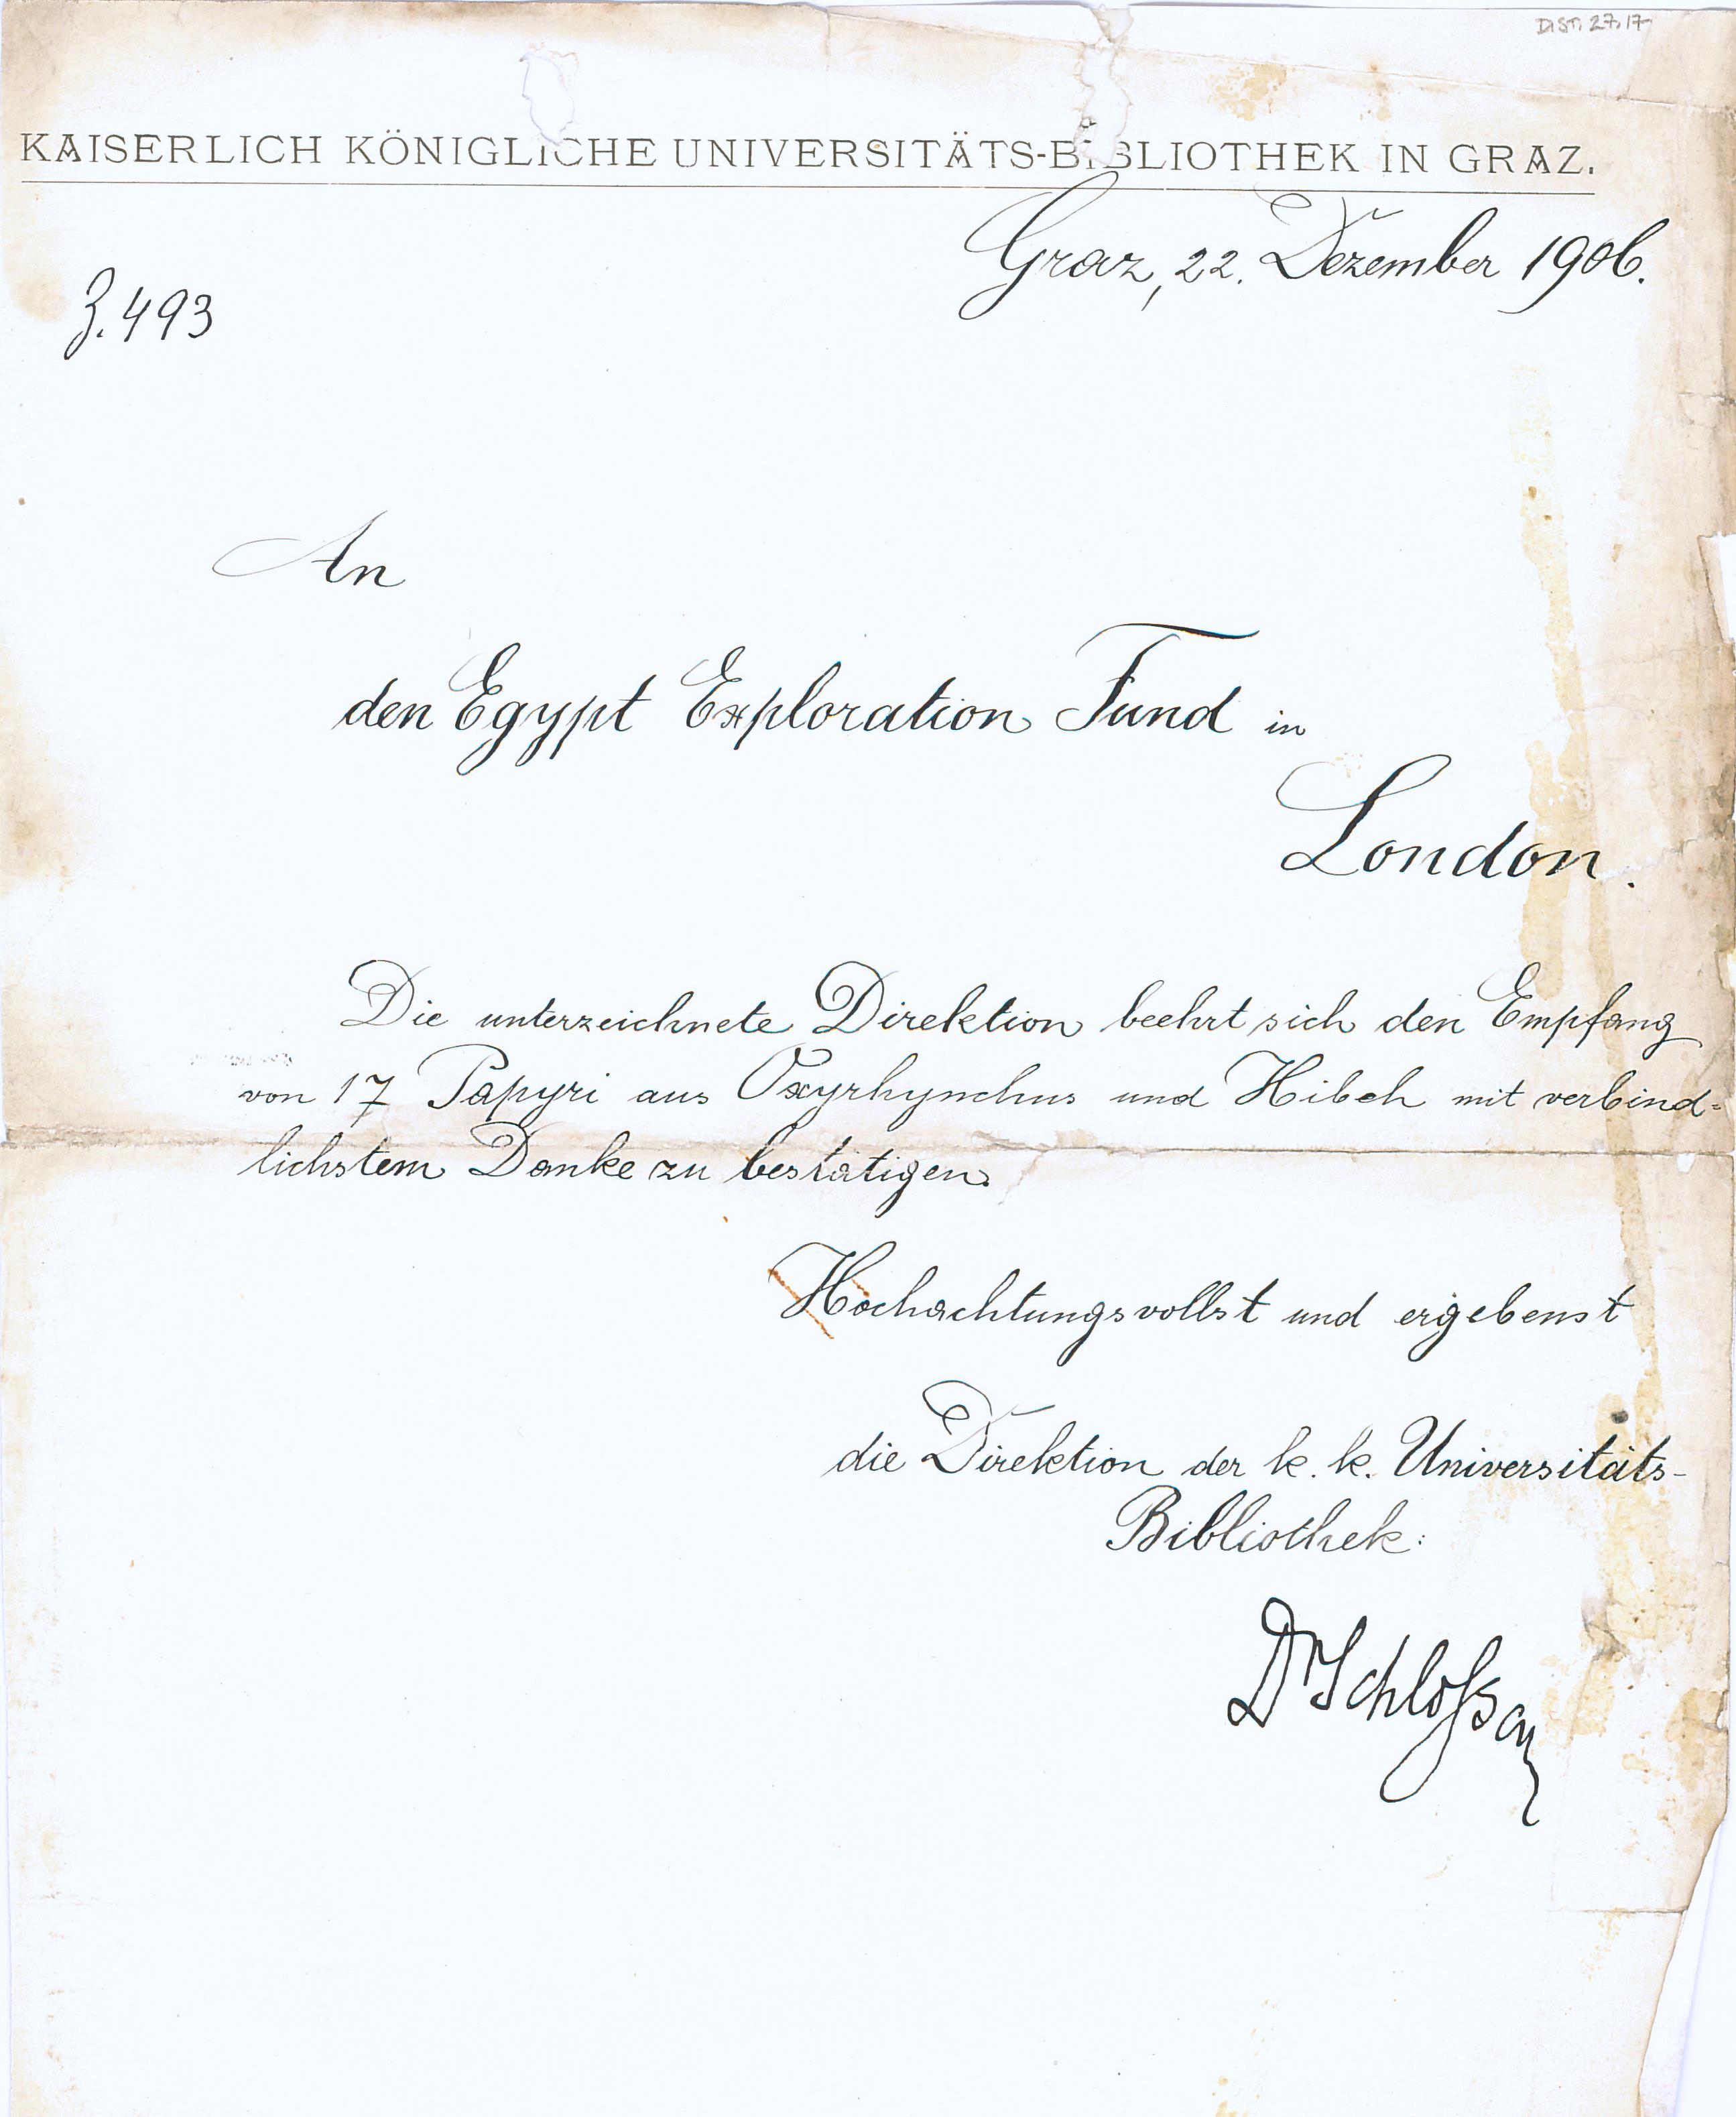 DIST. 27.17
KAISERLICH KÖNIGLICHE UNIVERSITÄTS-BIBLIOTHEK IN GRAZ.
Graz, 22. Dezember 1906.
Z. 493
An
den Egypt Exploration Fund in
London.
Die unterzeichnete Direktion beehrt sich den Empfang
von 17 Papyri aus Oxyrhynchus und Hibeh mit verbind-
lichstem Danke zu bestätigen.
Hochachtungsvollst und ergebenst
die Direktion der k. k. Universitäts-
Bibliothek:
Dr Schlossar